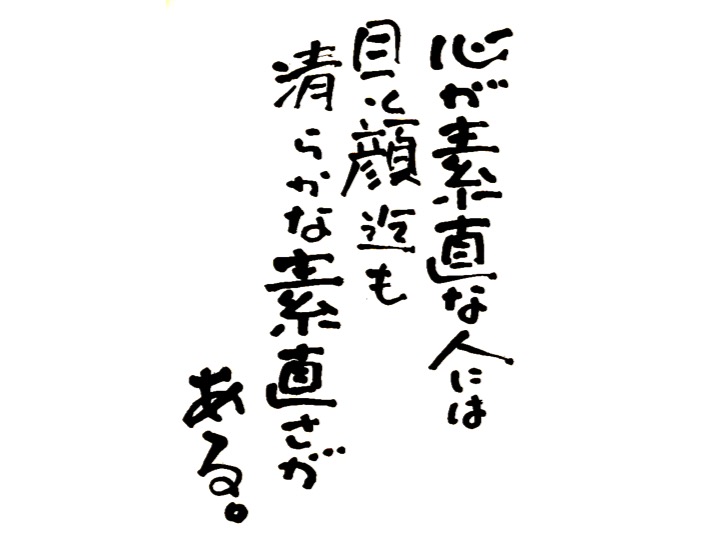 心が素直な人には
目顔迄も
清らかな素直さが
ある。